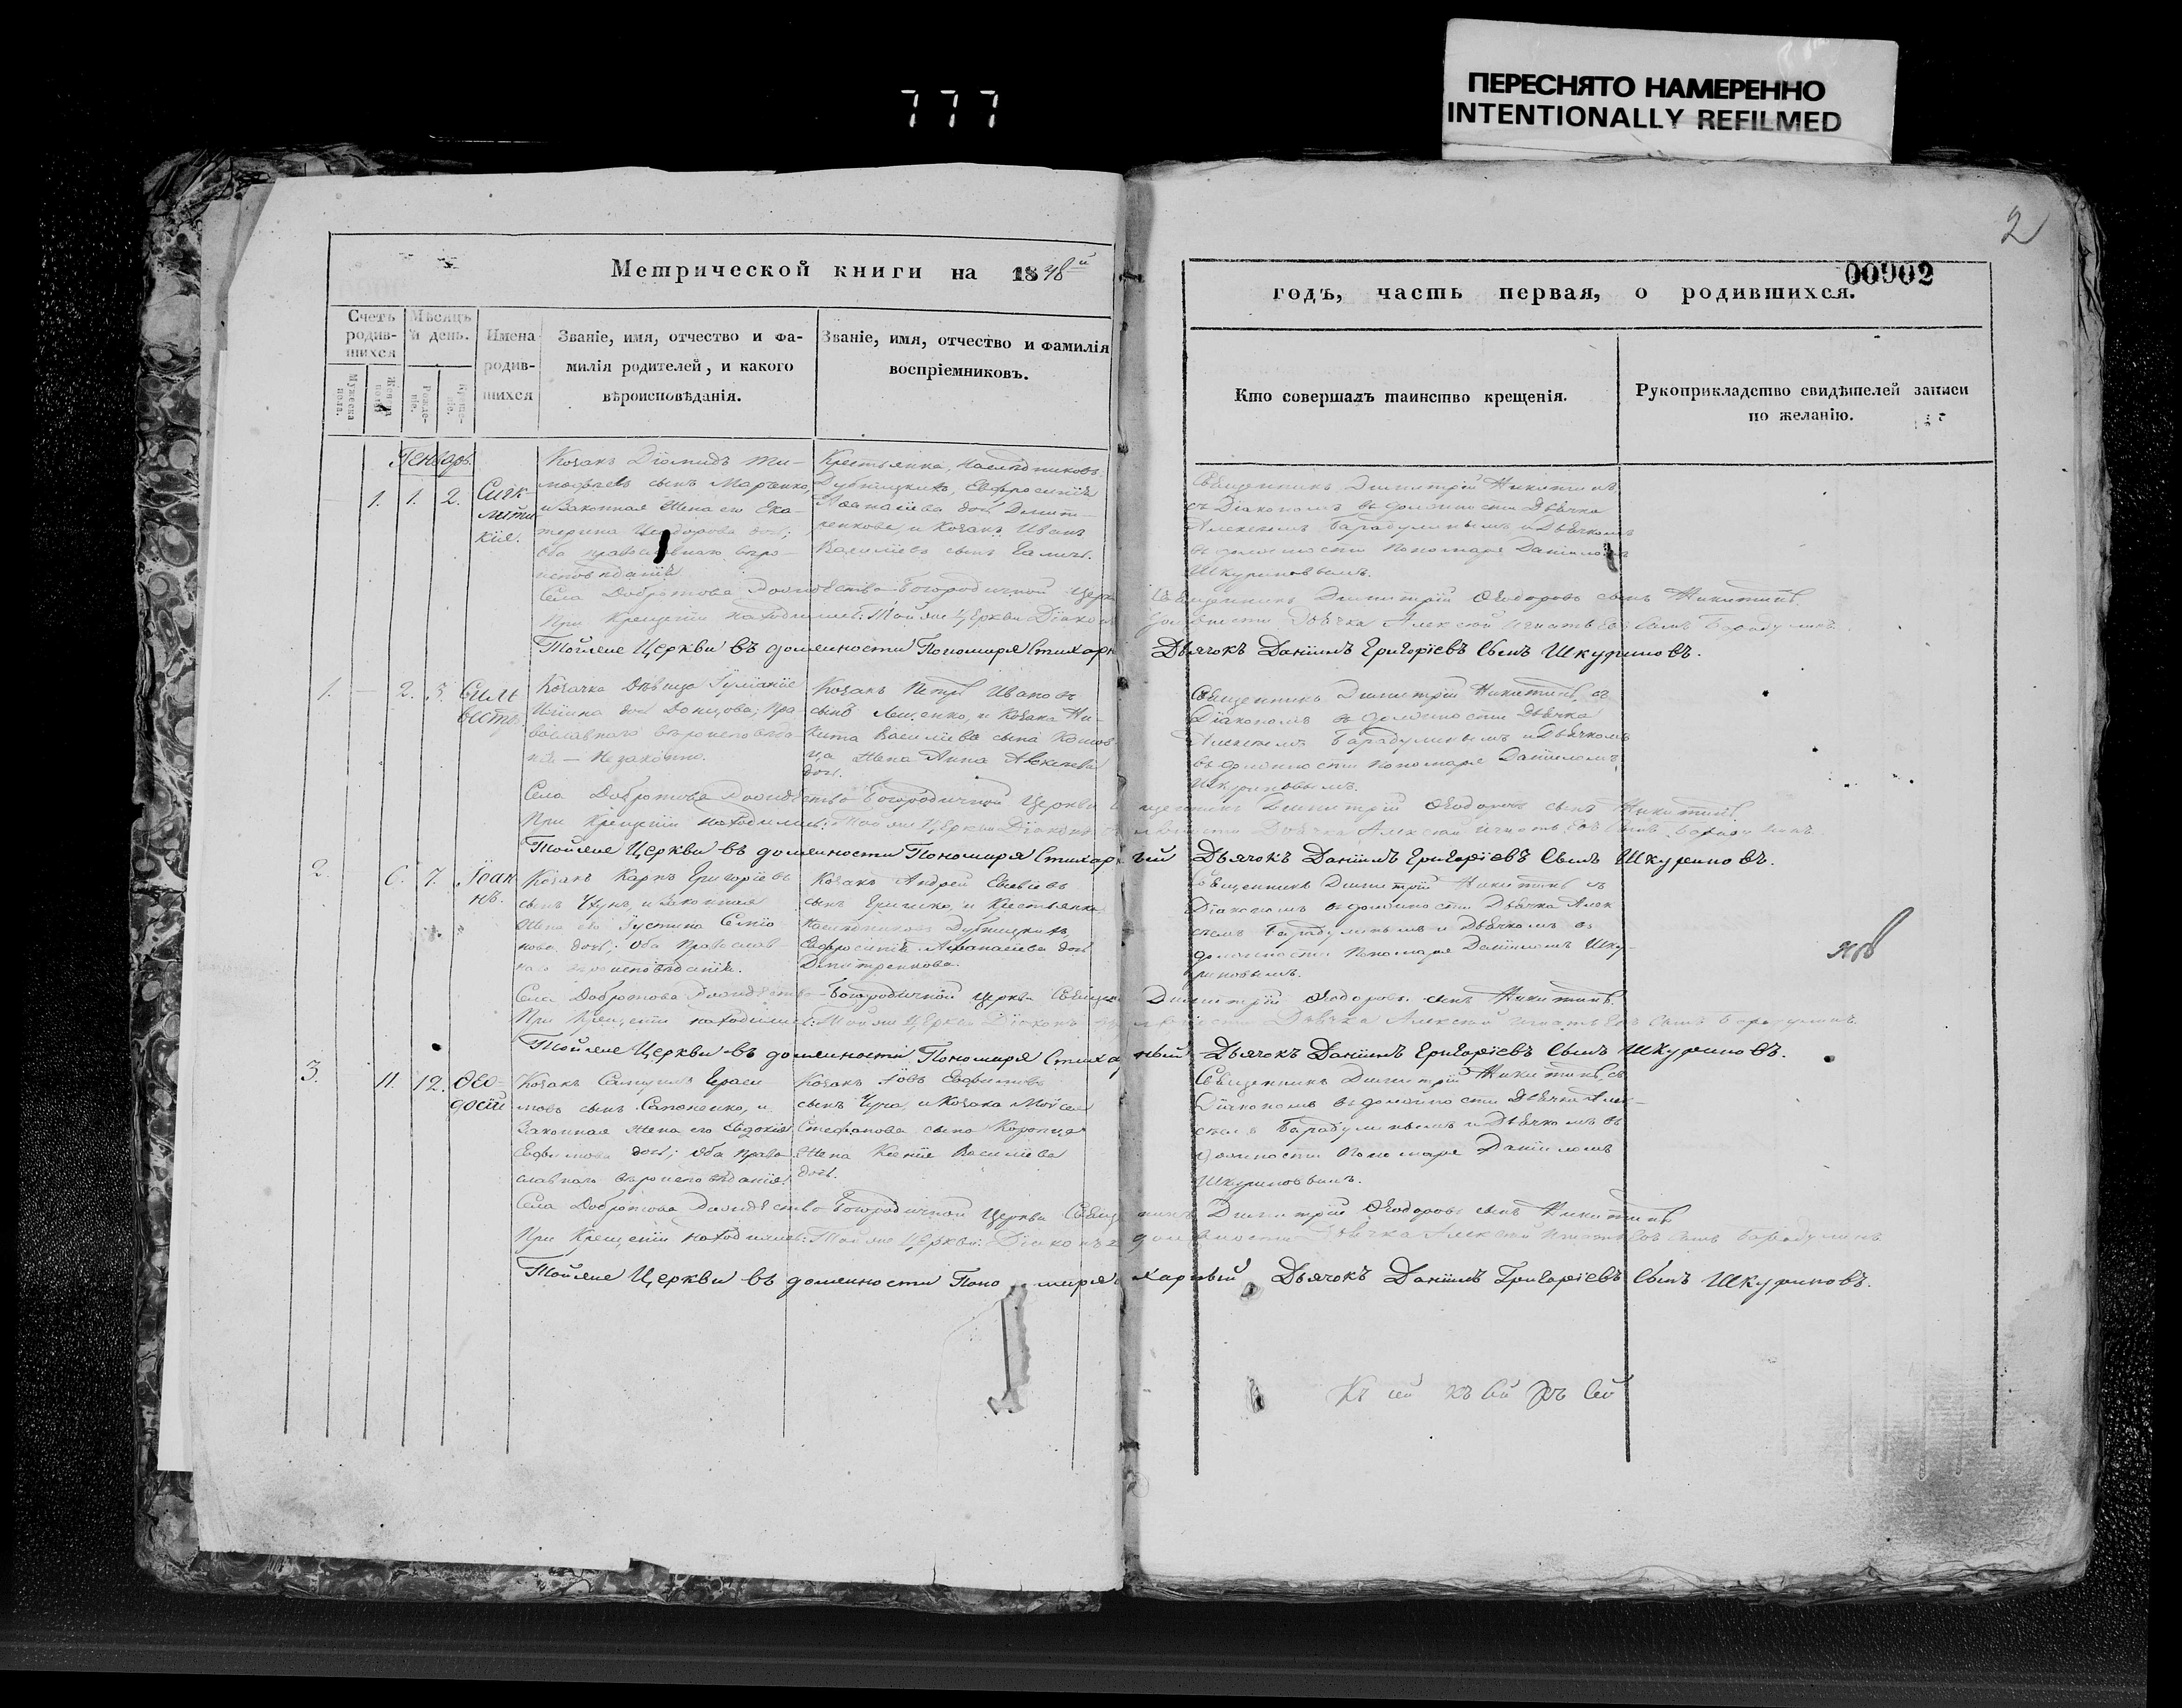 777
ПЕРЕСНЯТО НАМЕРЕННО
INTENTIONALLY REFILMED
2
00902
Метрической книги на 1848й
годъ, часть первая, о родившихся.
Счетъ родив-шихся
Мужеска пола.
Женска пола.
Мѣсяцъ и день.
Рожде-ніе.
Креще-ніе.
Имена родив-шихся
Званіе, имя, отчество и фа-
милія родителей, и какого
вѣроисповѣданія.
Званіе, имя, отчество и фамилія
воспріемниковъ.
Кто совершалъ таинство крещенія.
Рукоприкладство свидѣтелей записи
по желанію.
Генварь.
1. 1. 2.
Синк-
лити-
кія.
Козакъ Діомидъ Ти-
моѳеевъ сынъ Марченко,
и Законная Жена его Ека-
терина дочь;
Оба православнаго вѣро-
исповѣданія
Крестьянка, наслѣдниковъ
Дубницкихъ, Евфросинія
дочь Дмит-
ренкова, и Козакъ Иванъ
Василіевъ сынъ
Священникъ Димитрій Никитинъ
съ Діакономъ въ должности Дьячка
Алексѣемъ Барабулинымъ и Дьячкомъ
въ должности Пономаря Даніиломъ
Шкуриновымъ.
Села Добротова Рождество-Богородичной Церкви Священникъ Димитрій Ѳеодоровъ сынъ Никитинъ
При Крещеніи находились: Тойже Церкви Діаконъ должности Дьячка Алексѣй Игнатьевъ сынъ Барабулинъ
Тойже Церкви въ должности Пономаря Стихарный Дьячокъ Даніилъ Григоріевъ сынъ Шкуриновъ.
1. 2. 3.
Силь-
вестръ
Козачка Дѣвица Іуліанія
дочь Донцова; Пра-
вославнаго вѣроисповѣда-
нія — Незаконно.
Козакъ Петръ Ивановъ
сынъ и Козака Ни-
кита Василіева сына
Жена Анна
дочь.
Священникъ Димитрій Никитинъ, съ
Діакономъ въ должности Дьячка
Алексѣемъ Барабулинымъ и Дьячкомъ
въ должности Пономаря Даніиломъ
Шкуриновымъ.
Села Добротова Рождество-Богородичной Церкви Священникъ Димитрій Ѳеодоровъ сынъ Никитинъ
При Крещеніи находились: Тойже Церкви Діаконъ должности Дьячка Алексѣй Игнатьевъ сынъ Барабулинъ.
Тойже Церкви въ должности Пономаря Стихарный Дьячокъ Даніилъ Григоріевъ сынъ Шкуриновъ.
2. 6. 7.
Іоан-
нъ.
Козакъ Карпъ Григоріевъ
сынъ и Законная
Жена его Іустина Семіо-
нова дочь; Оба Православ-
наго вѣроисповѣданія.
Козакъ Андрей
сынъ и Крестьянка
Наслѣдниковъ Дубницкихъ,
Евфросинія Аѳанасіева дочь
Дмитренкова.
Священникъ Димитрій Никитинъ съ
Діакономъ въ должности Дьячка Алек-
сѣемъ Барабулинымъ и Дьячкомъ въ
должности Пономаря Даніиломъ Шку-
риновымъ.
Села Добротова Рождество-Богородичной Церкви Священникъ Димитрій Ѳеодоровъ сынъ Никитинъ.
При Крещеніи находились: Тойже Церкви Діаконъ должности Дьячка Алексѣй Игнатьевъ сынъ Барабулинъ.
Тойже Церкви въ должности Пономаря Стихарный Дьячокъ Даніилъ Григоріевъ сынъ Шкуриновъ.
3. 11. 12.
Ѳео-
досій
Козакъ Самуилъ Гераси-
мовъ сынъ Сапоненко, и
Законная Жена его Евдокія
Евфимова дочь; Оба право-
славнаго вѣроисповѣданія.
Козакъ Іовъ Евфимовъ
сынъ и Козака Моисея
Стефанова сына
Жена Ксенія Василіева
дочь.
Священникъ Димитрій Никитинъ, съ
Діакономъ въ должности Дьячка Алек-
сѣемъ Барабулинымъ и Дьячкомъ въ
должности Пономаря Даніиломъ
Шкуриновымъ.
Села Добротова Рождество-Богородичной Церкви Священникъ Димитрій Ѳеодоровъ сынъ Никитинъ
При Крещеніи находились: Тойже Церкви Діаконъ въ должности Дьячка Алексѣй Игнатьевъ сынъ Барабулинъ
Тойже Церкви въ должности Пономаря Стихарный Дьячокъ Даніилъ Григоріевъ сынъ Шкуриновъ.